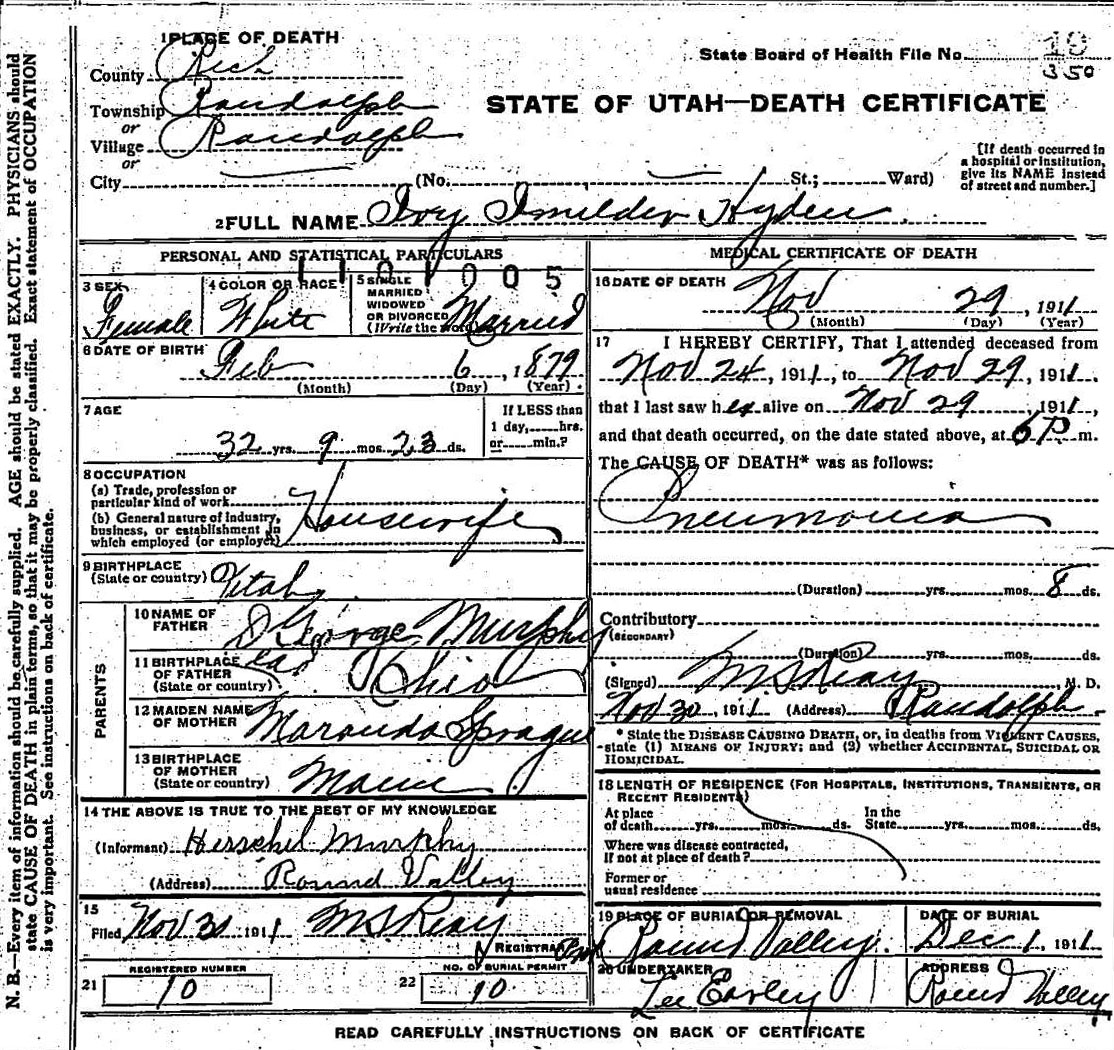 1 PLACE OF DEATH
County Rich
Township Randolph
or
Village Randolph
or
City (No. St.; Ward)
State Board of Health File No. 10
350
STATE OF UTAH—DEATH CERTIFICATE
[If death occurred in
a hospital or institution,
give its NAME instead
of street and number.]
2 FULL NAME Ivy Imilder Hyden
PERSONAL AND STATISTICAL PARTICULARS
1101005
3 SEX Female
4 COLOR OR RACE White
5 SINGLE
MARRIED
WIDOWED
OR DIVORCED
(Write the word) Married
6 DATE OF BIRTH Feb 6, 1879
(Month) (Day) (Year)
7 AGE
32 yrs. 9 mos. 23 ds.
If LESS than
1 day, hrs.
or min.?
8 OCCUPATION
(a) Trade, profession or
particular kind of work
(b) General nature of industry,
business, or establishment in
which employed (or employer)
Housewife
9 BIRTHPLACE
(State or country) Utah
PARENTS
10 NAME OF
FATHER D George Murphy
11 BIRTHPLACE
OF FATHER
(State or country) Ohio
12 MAIDEN NAME
OF MOTHER Maranda Sprague
13 BIRTHPLACE
OF MOTHER
(State or country) Maine
14 THE ABOVE IS TRUE TO THE BEST OF MY KNOWLEDGE
(Informant) Herschel Murphy
(Address) Round Valley
15
Filed Nov 30 1911 M S Reay
REGISTRAR
REGISTERED NUMBER
21 10
NO. OF BURIAL PERMIT
22 10
MEDICAL CERTIFICATE OF DEATH
16 DATE OF DEATH Nov 29, 1911
(Month) (Day) (Year)
17 I HEREBY CERTIFY, That I attended deceased from
Nov 24, 1911, to Nov 29, 1911.
that I last saw her alive on Nov 29, 1911,
and that death occurred, on the date stated above, at 6 P m.
The CAUSE OF DEATH* was as follows:
Pneumonia
(Duration) yrs. mos. 8 ds.
Contributory
(SECONDARY)
(Duration) yrs. mos. ds.
(Signed) M S Reay M. D.
Nov 30, 1911 (Address) Randolph
* State the DISEASE CAUSING DEATH, or, in deaths from VIOLENT CAUSES,
state (1) MEANS OF INJURY; and (2) whether ACCIDENTAL, SUICIDAL OR
HOMICIDAL.
18 LENGTH OF RESIDENCE (FOR HOSPITALS, INSTITUTIONS, TRANSIENTS, OR
RECENT RESIDENTS)
At place
of death yrs. mos. ds.
In the
State yrs. mos. ds.
Where was disease contracted,
If not at place of death?
Former or
usual residence
19 PLACE OF BURIAL OR REMOVAL
Round Valley.
DATE OF BURIAL
Dec 1, 1911
20 UNDERTAKER
Lee Earley
ADDRESS
Round Valley
READ CAREFULLY INSTRUCTIONS ON BACK OF CERTIFICATE
N. B.—Every item of information should be carefully supplied. AGE should be stated EXACTLY. PHYSICIANS should
state CAUSE OF DEATH in plain terms, so that it may be properly classified. Exact statement of OCCUPATION
is very important. See instructions on back of certificate.